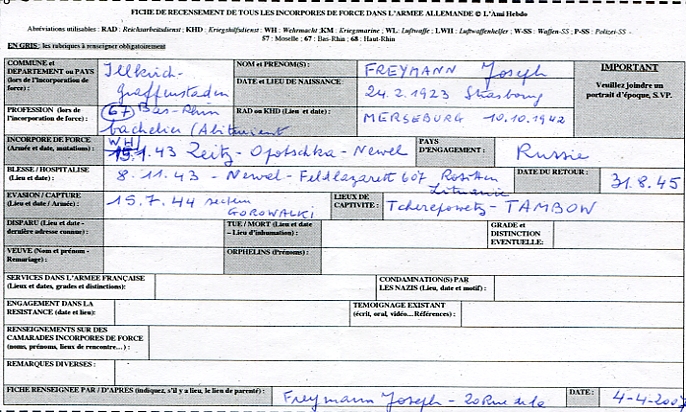 FICHE DE RECENSEMENT DE TOUS LES INCORPORES DE FORCE DANS L'ARMEE ALLEMANDE © L'Ami Hebdo
Abréviations utilisables : RAD : Reichsarbeitsdienst ; KHD : Kriegshilfsdienst ; WH : Wehrmacht ; KM : Kriegsmarine ; WL : Luftwaffe ; LWH : Luftwaffenhelfer ; W-SS : Waffen-SS ; P-SS : Polizei-SS -
57 : Moselle ; 67 : Bas-Rhin ; 68 : Haut-Rhin
EN GRIS : les rubriques à renseigner obligatoirement
COMMUNE et DEPARTEMENT ou PAYS (lors de l'incorporation de force) : Illkirch-Graffenstaden (67) Bas-Rhin
NOM et PRENOM(S) : FREYMANN Joseph
IMPORTANT
Veuillez joindre un portrait d'époque, S.V.P.
DATE et LIEU DE NAISSANCE 24.2.1923 Strasbourg
PROFESSION (lors de l'incorporation de force) : bachelier (Abiturient
RAD ou KHD (Lieu et date) : MERSEBURG 10.10.1942
INCORPORE DE FORCE (Armée et date, mutations) : WH 15.1.43 Zeitz - Opotschka - Newel
PAYS D'ENGAGEMENT : Russie
BLESSE / HOSPITALISE (Lieu et date) : 8.11.43 - Newel - Feldlazarett 607 Lituanie
DATE DU RETOUR : 31.8.45
EVASION / CAPTURE (Lieu et date / Armée) : 15.7.44 secteur GOROWALKI
LIEUX DE CAPTIVITE : Tcherepowetz - TAMBOW
DISPARU (Lieu et date - dernière adresse connue) :
TUE / MORT (Lieu et date – Lieu d'inhumation) :
GRADE et DISTINCTION EVENTUELLE:
VEUVE (Nom et prénom - Remariage) :
ORPHELINS (Prénoms) :
SERVICES DANS L'ARMEE FRANÇAISE (Lieux et dates, grades et distinctions) :
CONDAMNATION(S) PAR LES NAZIS (Lieu, date et motif) :
ENGAGEMENT DANS LA RESISTANCE (date et lieu) :
TEMOIGNAGE EXISTANT (écrit, oral, vidéo... Références) :
RENSEIGNEMENTS SUR DES CAMARADES INCORPORES DE FORCE (noms, prénoms, lieux de rencontre...) :
REMARQUES DIVERSES :
FICHE RENSEIGNEE PAR / D'APRES (indiquez, s'il y a lieu, le lieu de parenté) : Freymann Joseph - 20 Rue de la
DATE : 4-4-2007